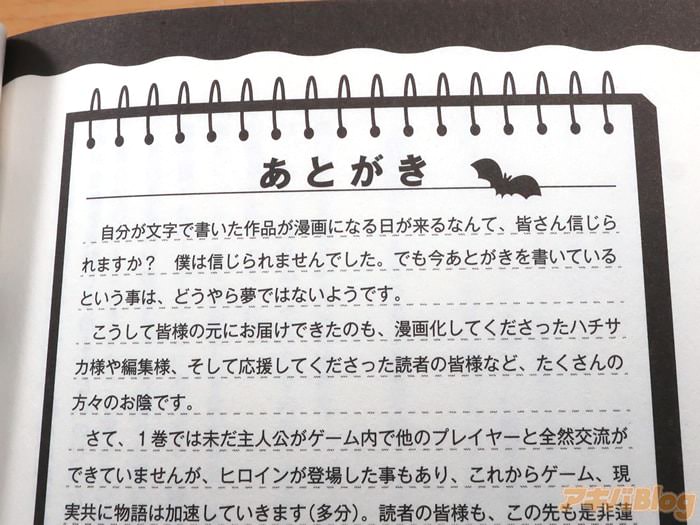 あとがき
　自分が文字で書いた作品が漫画になる日が来るなんて、皆さん信じら
れますか？　僕は信じられませんでした。でも今あとがきを書いている
という事は、どうやら夢ではないようです。
　こうして皆様の元にお届けできたのも、漫画化してくださったハチサ
カ様や編集様、そして応援してくださった読者の皆様など、たくさんの
方々のお陰です。
　さて、１巻では未だ主人公がゲーム内で他のプレイヤーと全然交流が
できていませんが、ヒロインが登場した事もあり、これからゲーム、現
実共に物語は加速していきます(多分)。読者の皆様も、この先も是非蓮
アキバBlog